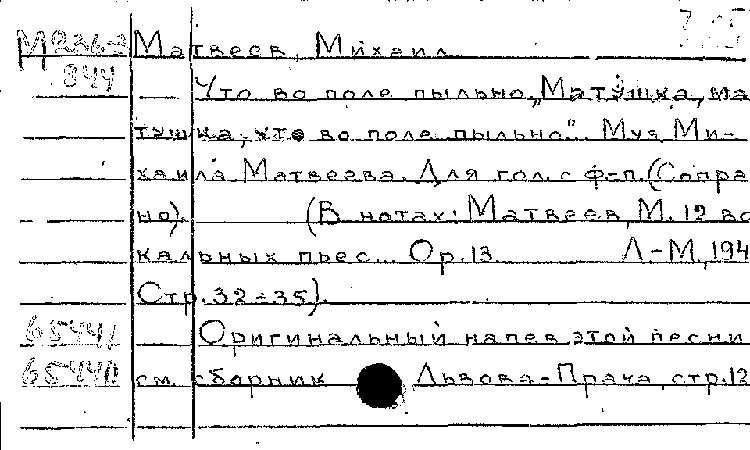 Матвеев, Михаил
844
Что во поле пыльно „Матушка, ма
тушка, что во поле пыльно". Муз. Ми-
хаила Матвеева. Для гол. с ф-п. (Сопра
но). (В нотах: Матвеев, М. 12 во
кальных пьес... Ор. 13 Л-М, 194
Стр. 32-35).
65441 Оригинальный напев этой песни
см. сборник Львова-Прача, стр. 12